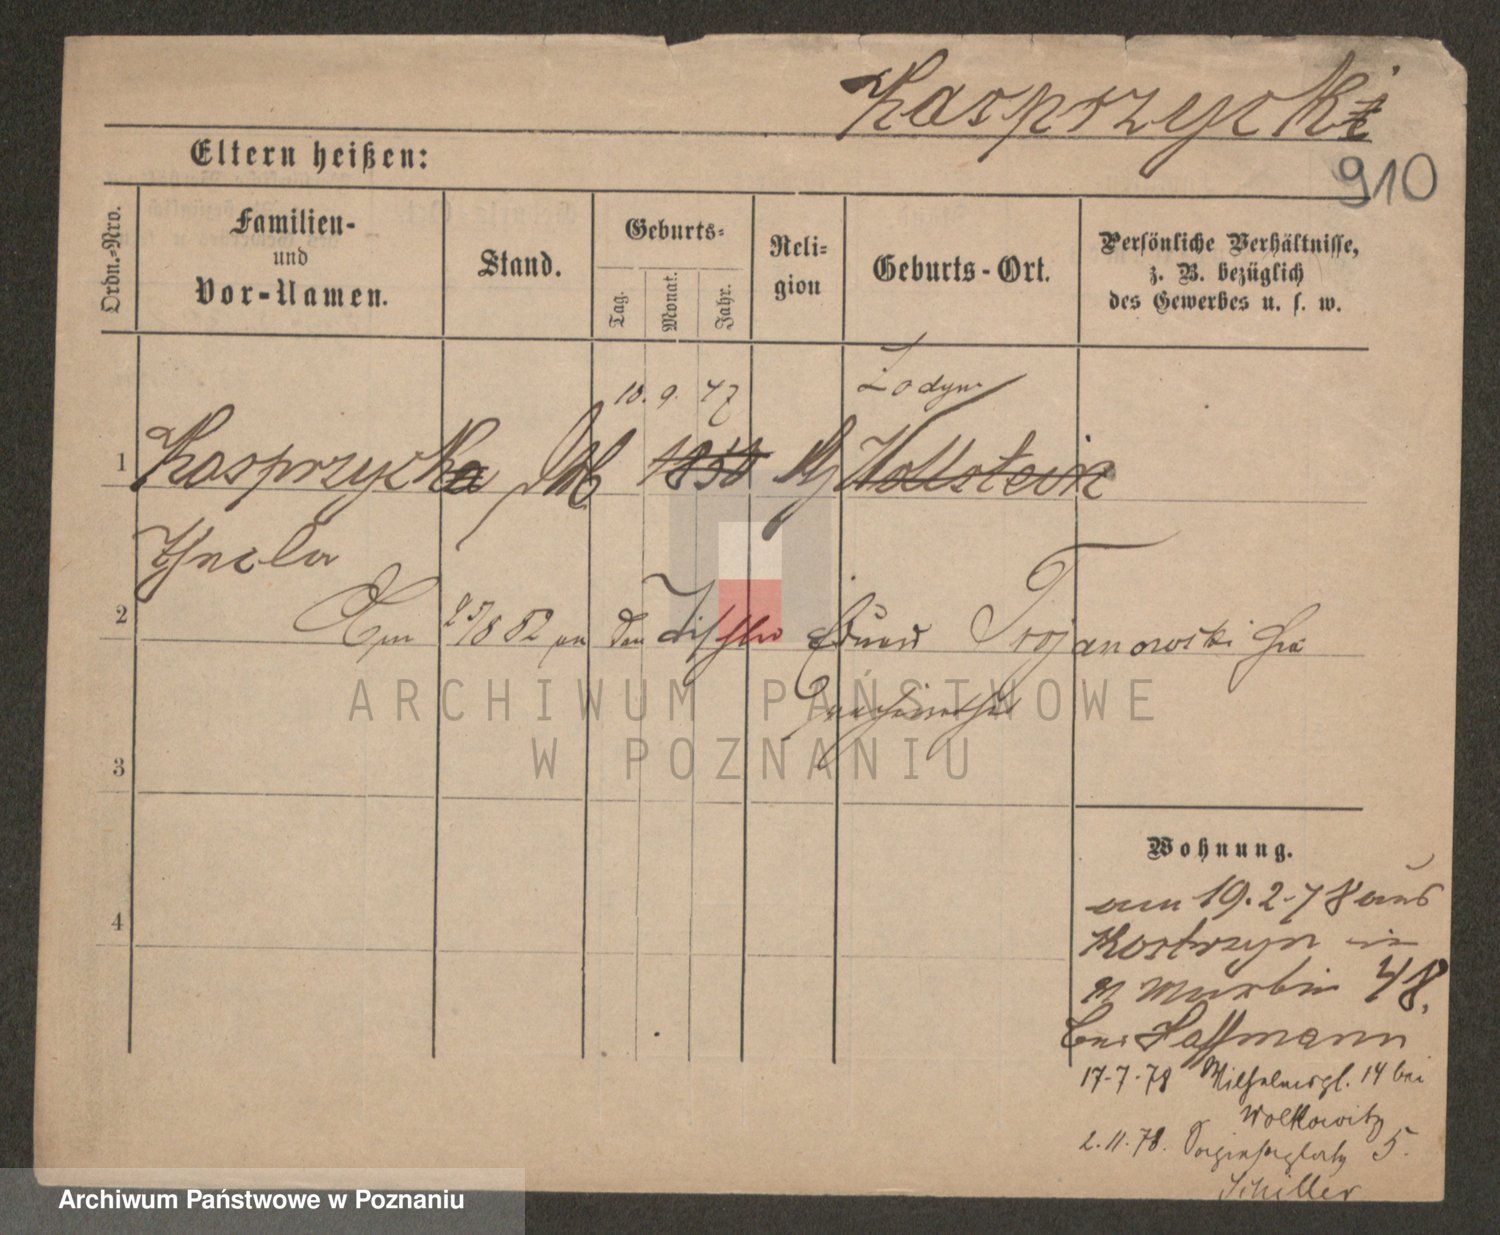 Kasprzycki
910
Eltern heißen:
Ordn.-Nro.
Familien-
und
Vor-Namen.
Stand.
Geburts-
Tag.
Monat.
Jahr.
Reli-
gion
Geburts-Ort.
Persönliche Verhältnisse,
z. B. bezüglich
des Gewerbes u. s. w.
10. 9. 47
1
Kasprzycka
1850
Wollstein
Thecla
2
Am 25/8 82 an den Tischler Eduard Trojanowski
3
ARCHIWUM PAŃSTWOWE
W POZNANIU
Wohnung.
am 19.2.78 aus
Kostrzyn in
St Martin 48.
bei Hoffmann
17.7.78 Wilhelmspl. 14 bei
Wolkowitz
2.11.78. 5.
Schiller
4
Archiwum Państwowe w Poznaniu